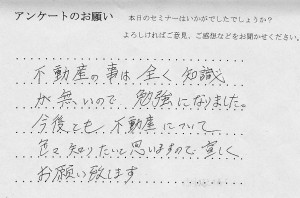 アンケートのお願い
本日のセミナーはいかがでしたでしょうか?
よろしければご意見、ご感想などをお聞かせください。
不動産の事は全く知識
が無いので勉強になりました。
今後とも、不動産について
色々知りたいと思いますので宜しく
お願い致します